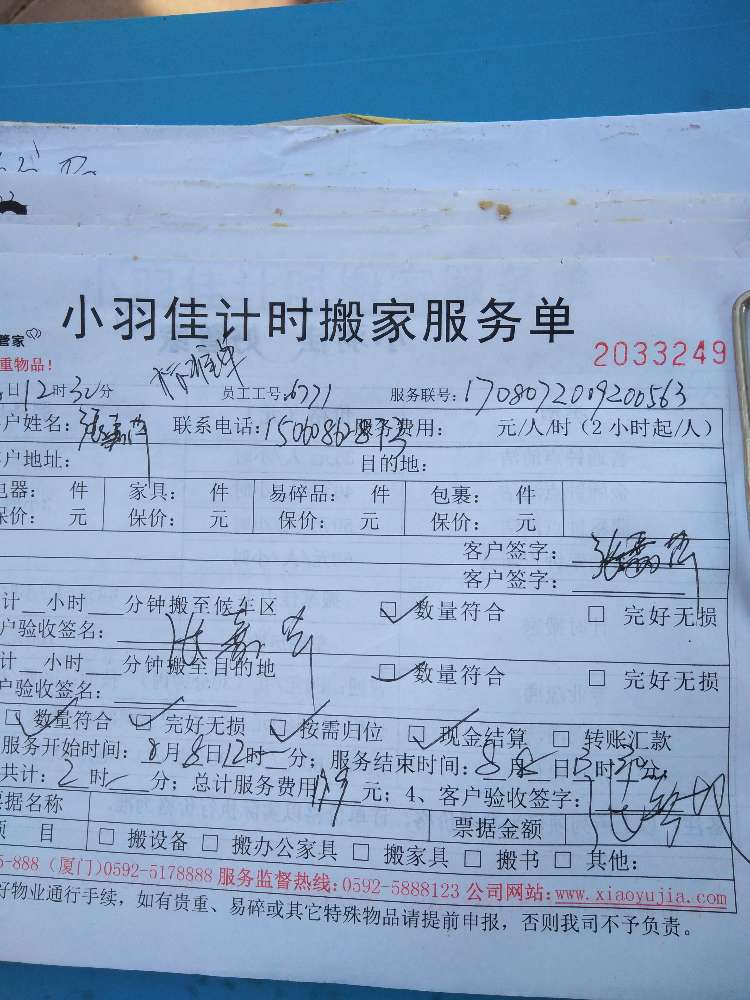 管家
小羽佳计时搬家服务单
重物品!
2033249
日12时30分 标准单 员工工号:6771 服务联号:1708072009200563
户姓名: 联系电话: 服务费用: 元/人/时(2小时起/人)
户地址: 目的地:
电器: 件 家具: 件 易碎品: 件 包裹: 件
保价: 元 保价: 元 保价: 元 保价: 元
客户签字:
客户签字:
计__小时__分钟搬至候车区 ☑ 数量符合 □ 完好无损
户验收签名:
计__小时__分钟搬至目的地 ☑ 数量符合 □ 完好无损
户验收签名:
☑ 数量符合 ☑ 完好无损 ☑ 按需归位 ☑ 现金结算 □ 转账汇款
服务开始时间:8月8日12时 分; 服务结束时间:8月8日 时 分.
共计:2时 分; 总计服务费用 元; 4、客户验收签字:
票据名称 票据金额
项 目 □ 搬设备 □ 搬办公家具 □ 搬家具 □ 搬书 □ 其他:
5-888 (厦门)0592-5178888 服务监督热线:0592-5888123 公司网站:www.xiaoyujia.com
好物业通行手续,如有贵重、易碎或其它特殊物品请提前申报,否则我司不予负责。